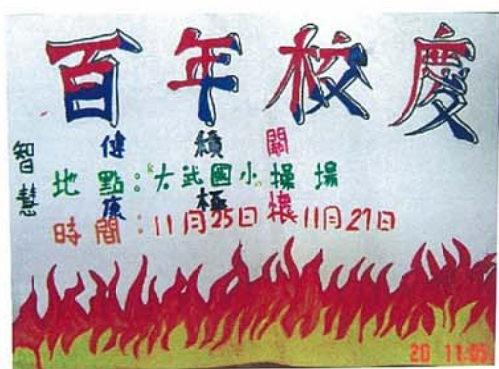 百年校慶
智慧
健康
積極
關懷
地點："大武國小"操場
時間：11月25日 11月27日
20 11:05